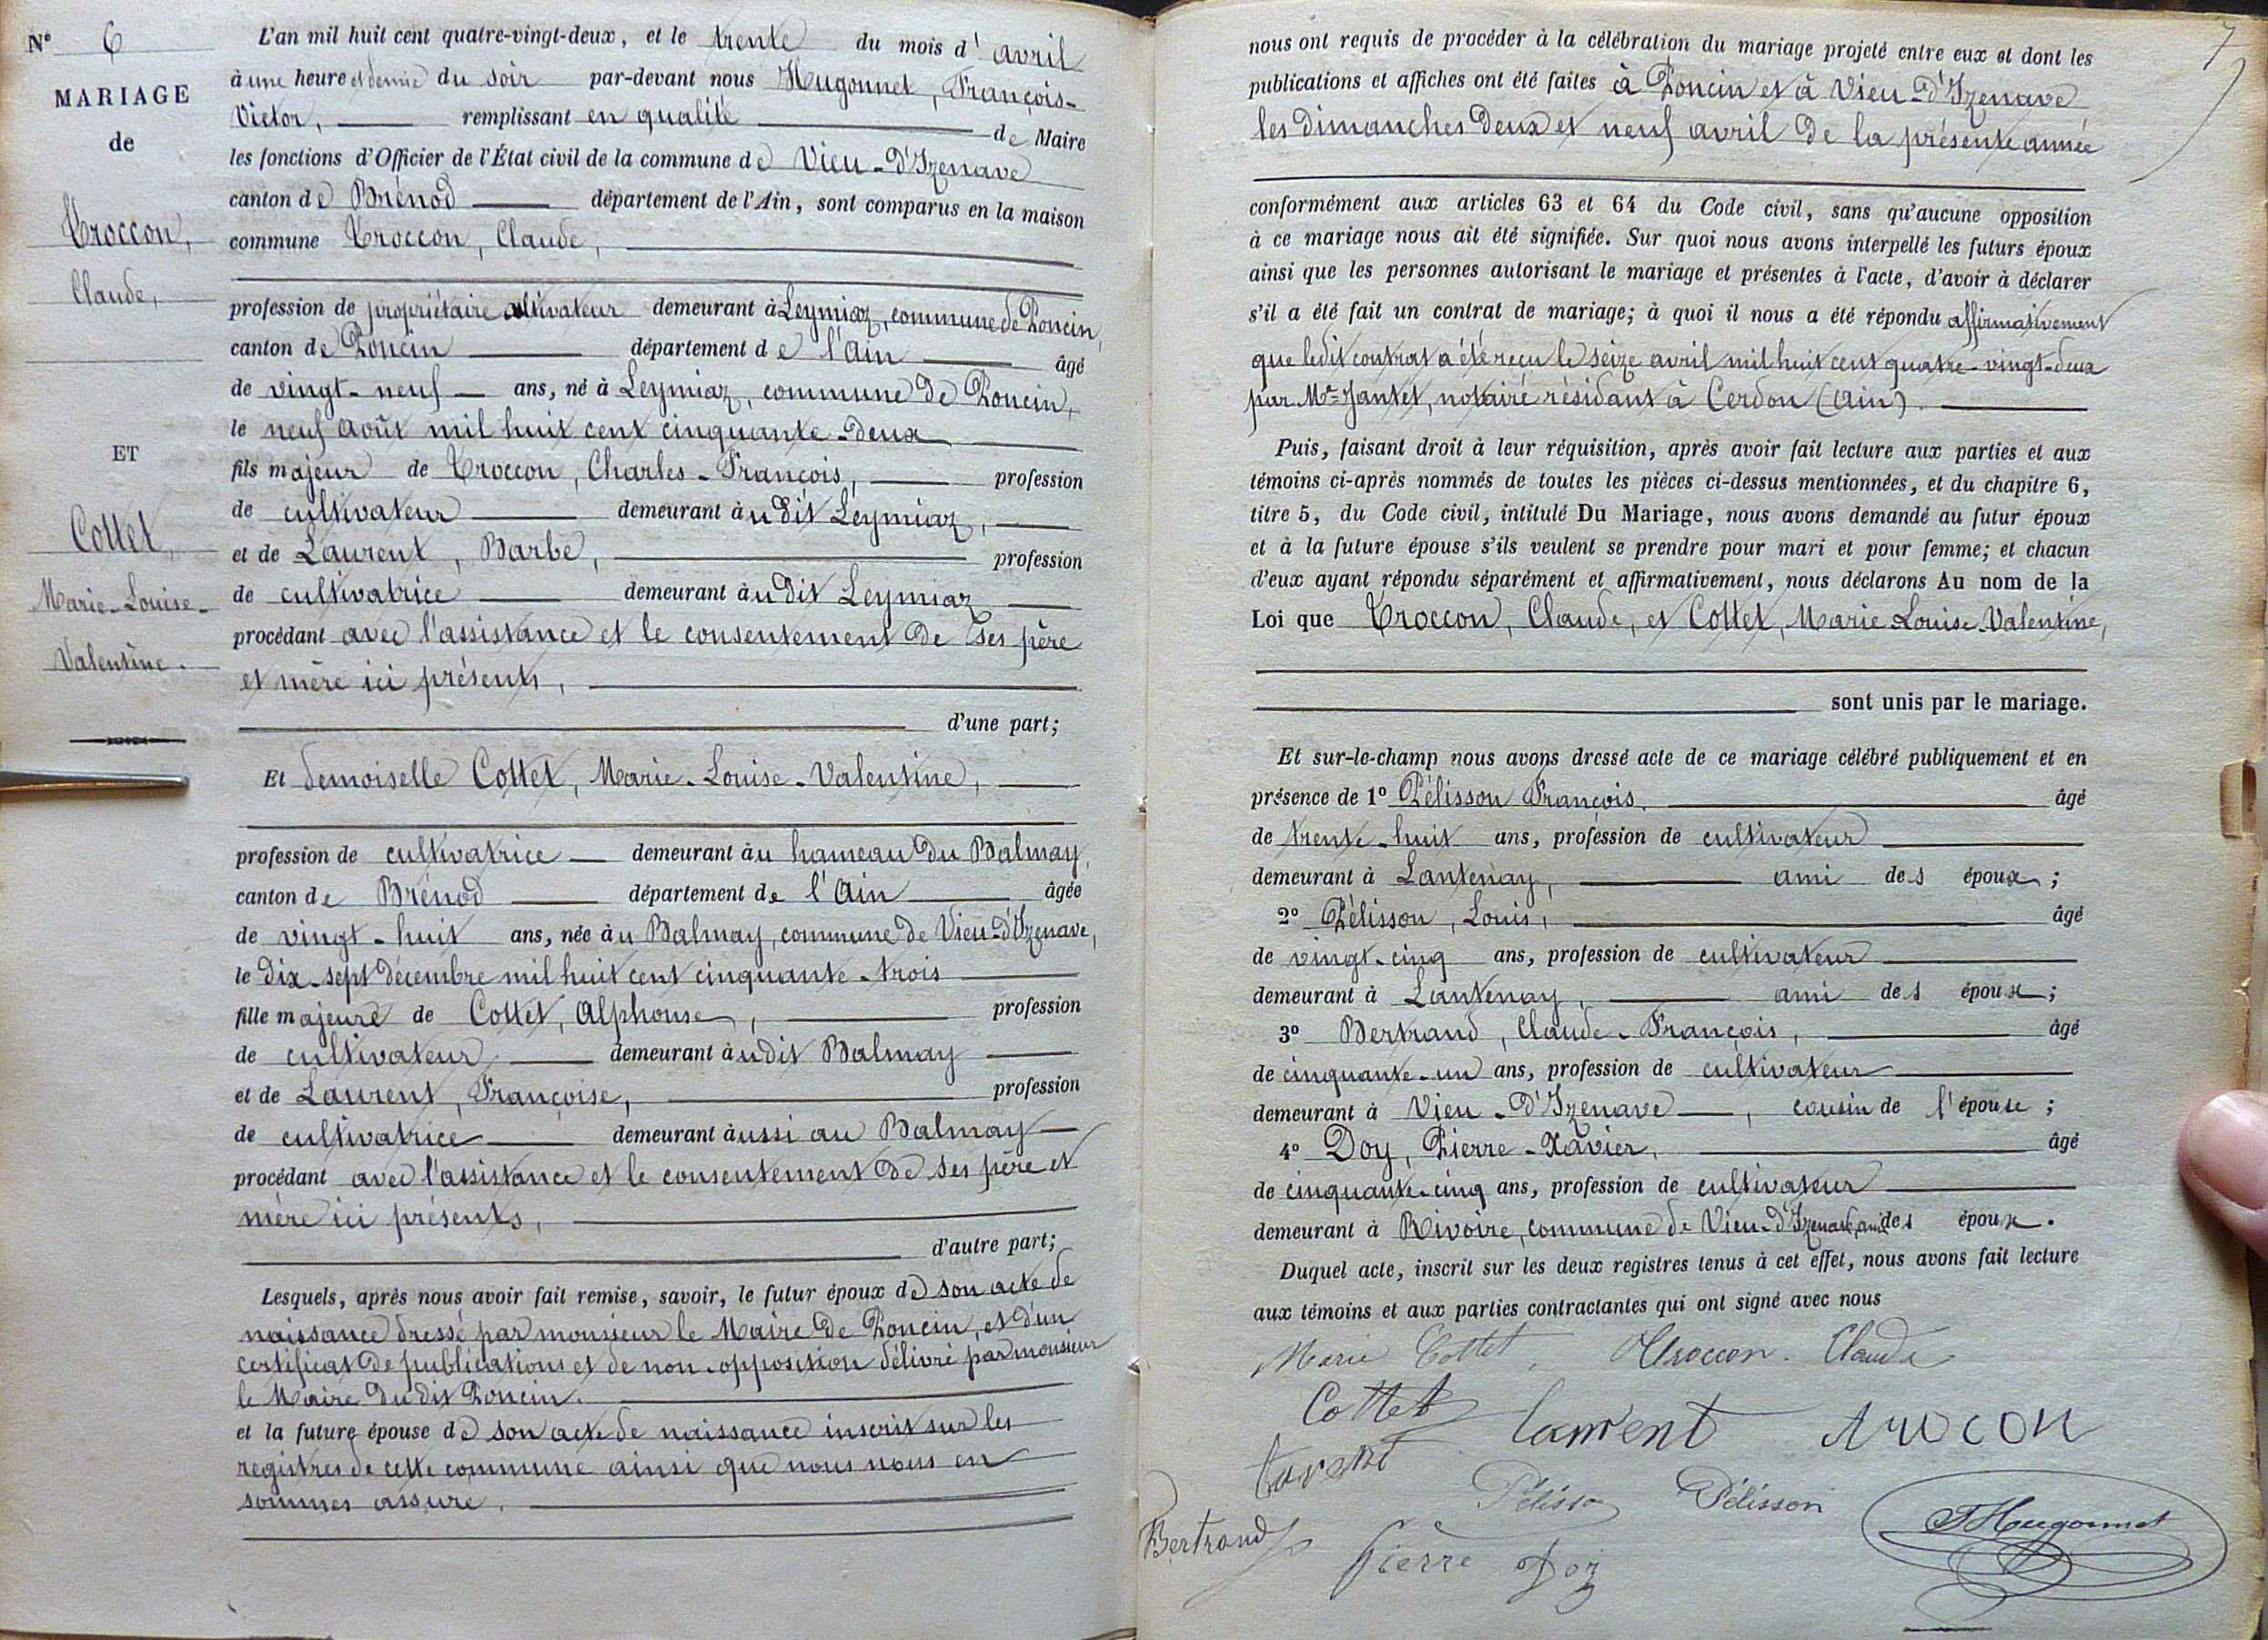 N° 6
MARIAGE
de
Troccon,
Claude,
ET
Cottet,
Marie-Louise-
Valentine.
L'an mil huit cent quatre-vingt-deux, et le trente du mois d'avril
à une heure et demie du soir par-devant nous Hugonnet, François-
Victor, remplissant en qualité de Maire
les fonctions d'Officier de l'État civil de la commune de Vieu-d'Izenave
canton de Brénod département de l'Ain, sont comparus en la maison
commune Troccon, Claude,
profession de propriétaire cultivateur demeurant à Leymiaz, commune de Poncin,
canton de Poncin département de l'Ain âgé
de vingt-neuf ans, né à Leymiaz, commune de Poncin,
le neuf Août mil huit cent cinquante-deux
fils majeur de Troccon, Charles-François, profession
de cultivateur demeurant àudit Leymiaz,
et de Laurent, Barbe, profession
de cultivatrice demeurant àudit Leymiaz
procédant avec l'assistance et le consentement de ses père
et mère ici présents,
d'une part;
Et demoiselle Cottet, Marie-Louise-Valentine,
profession de cultivatrice demeurant àu hameau du Balmay,
canton de Brénod département de l'Ain âgée
de vingt-huit ans, née àu Balmay, commune de Vieu-d'Izenave,
le dix-sept décembre mil huit cent cinquante-trois
fille majeure de Cottet, Alphonse, profession
de cultivateur demeurant àudit Balmay
et de Laurent, Françoise, profession
de cultivatrice demeurant àussi au Balmay
procédant avec l'assistance et le consentement de ses père et
mère ici présents,
d'autre part;
Lesquels, après nous avoir fait remise, savoir, le futur époux de son acte de
naissance dressé par monsieur le Maire de Poncin, et d'un
certificat de publications et de non-opposition délivré par monsieur
le Maire dudit Poncin.
et la future épouse de son acte de naissance inscrit sur les
registres de cette commune ainsi que nous nous en
sommes assuré.
7
nous ont requis de procéder à la célébration du mariage projeté entre eux et dont les
publications et affiches ont été faites à Poncin et à Vieu-d'Izenave
les dimanches deux et neuf avril de la présente année
conformément aux articles 63 et 64 du Code civil, sans qu'aucune opposition
à ce mariage nous ait été signifiée. Sur quoi nous avons interpellé les futurs époux
ainsi que les personnes autorisant le mariage et présentes à l'acte, d'avoir à déclarer
s'il a été fait un contrat de mariage; à quoi il nous a été répondu affirmativement
que ledit contrat a été reçu le seize avril mil huit cent quatre-vingt-deux
par Me Jantet, notaire résidant à Cerdon (Ain).
Puis, faisant droit à leur réquisition, après avoir fait lecture aux parties et aux
témoins ci-après nommés de toutes les pièces ci-dessus mentionnées, et du chapitre 6,
titre 5, du Code civil, intitulé Du Mariage, nous avons demandé au futur époux
et à la future épouse s'ils veulent se prendre pour mari et pour femme; et chacun
d'eux ayant répondu séparément et affirmativement, nous déclarons Au nom de la
Loi que Troccon, Claude, et Cottet, Marie Louise-Valentine,
sont unis par le mariage.
Et sur-le-champ nous avons dressé acte de ce mariage célébré publiquement et en
présence de 1° Pélisson François. âgé
de trente-huit ans, profession de cultivateur
demeurant à Lantenay, ami des époux;
2° Pélisson, Louis, âgé
de vingt-cinq ans, profession de cultivateur
demeurant à Lantenay, ami des époux;
3° Bertrand, Claude-François, âgé
de cinquante-un ans, profession de cultivateur
demeurant à Vieu-d'Izenave, cousin de l'épouse;
4° Doy, Pierre-Xavier, âgé
de cinquante-cinq ans, profession de cultivateur
demeurant à Rivoire, commune de Vieu-d'Izenave, ami des époux.
Duquel acte, inscrit sur les deux registres tenus à cet effet, nous avons fait lecture
aux témoins et aux parties contractantes qui ont signé avec nous
Marie Cottet. Troccon. Claude
Cottet laurent trocon
Pélisson Pélisson
Bertrand Pierre Doy FHugonnet